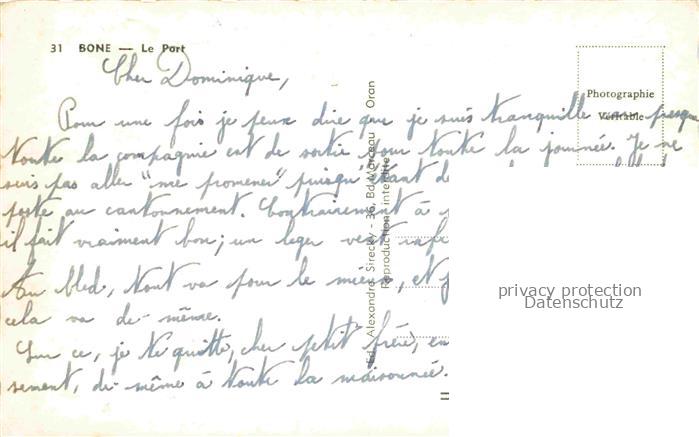 31 BONE — Le Port
Cher Dominique,
Pour une fois je peux dire que je suis tranquille car presque
toute la compagnie est de sortie pour toute la journée. Je ne
suis pas aller "me promener" puisqu'étant de
poste au cantonnement. Contrairement à
il fait vraiment bon; un leger vent
Au bled, tout va pour le mieux, et
cela va de même.
Sur ce, je te quitte, cher petit frère, en
sement, de même à toute la maisonnée.
Photographie
Véritable
Ed. Alexandre Sirecky - 36, Bd Marceau - Oran
Reproduction interdite
privacy protection
Datenschutz